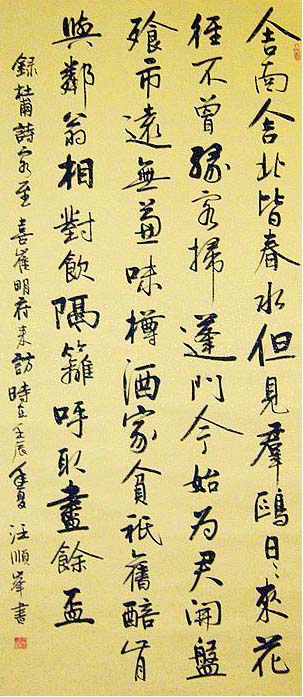 舍南舍北皆春水但見羣鷗日〻來花
徑不曾緣客掃蓬門今始為君開盤
飱市遠無兼味樽酒家貧祇舊醅肯
與鄰翁相對飲隔籬呼取盡餘盃
錄杜甫詩客至 喜崔明府来訪 時在壬辰年夏 汪順峯書